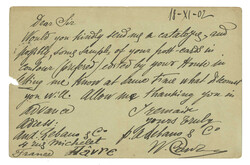 18-XI-02
Dear Sir
Wants you kindly send me a catalogue and
possibly, some sample of your post cards in
colour prepared, edited by your House in
letting me know at same time what discount
you will allow me thanking you in
advance I remain
Yours truly
4 rue Michelet
France Havre